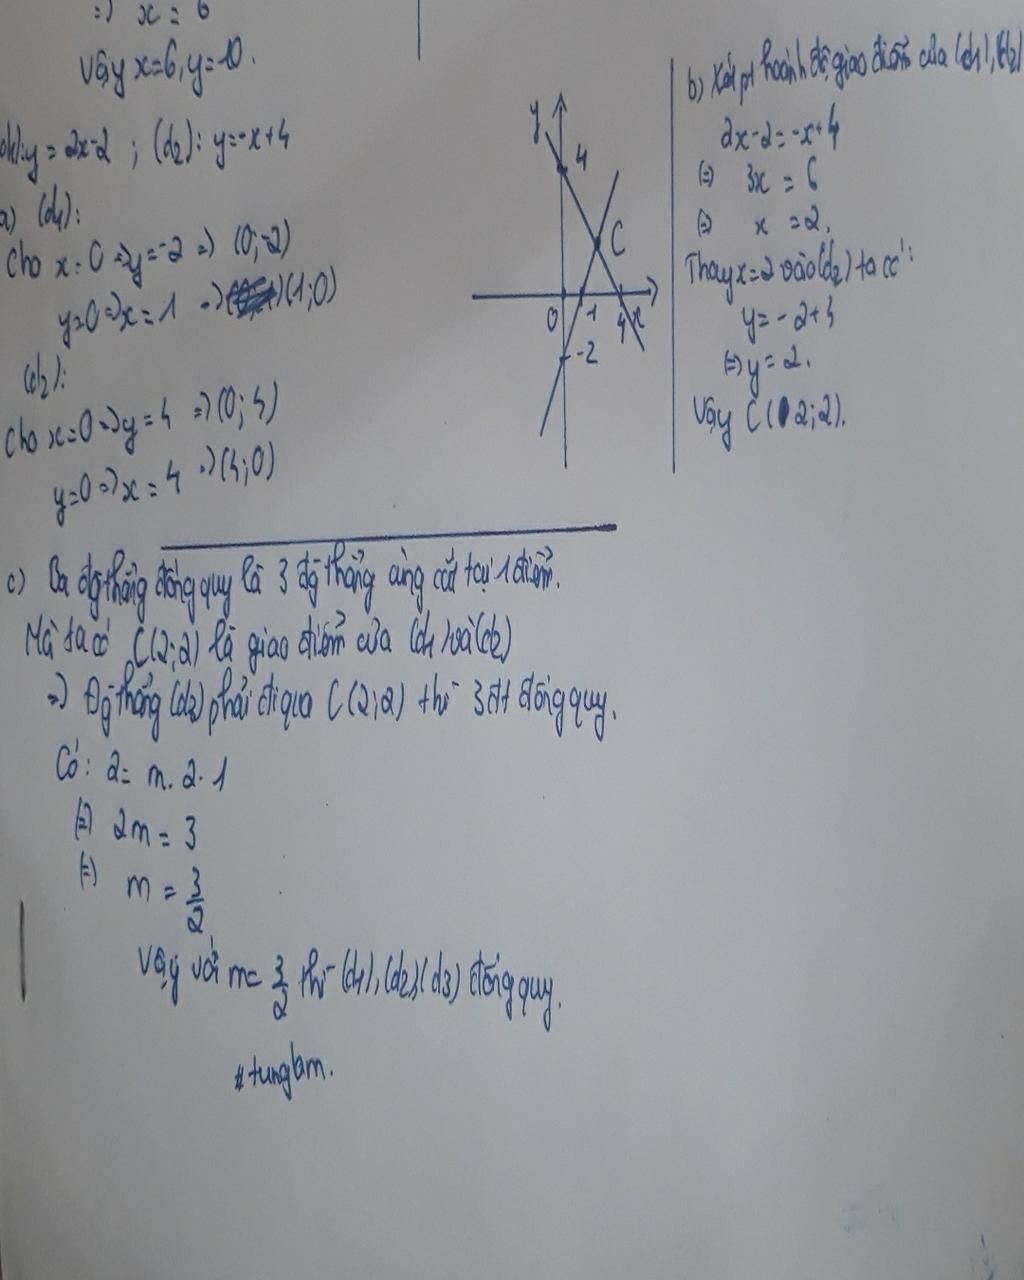 => x = 6
Vậy x=6, y=10.
(d1): y = 2x-2 ; (d2): y=-x+4
a) (d1):
Cho x=0 => y=-2 => (0;-2)
y=0 => x=1 => (1;0)
(d2):
Cho x=0 => y=4 => (0;4)
y=0 => x=4 => (4;0)
y
4
C
0 1 4 x
-2
b) Xét pt hoành độ giao điểm của (d1), (d2)
2x-2=-x+4
(=) 3x = 6
(=) x = 2.
Thay x=2 vào (d2) ta có:
y= -2+4
(=) y = 2.
Vậy C (2;2).
c) Ba đg thẳng đồng quy là 3 đg thẳng cùng cắt tại 1 điểm.
Mà ta có C(2;2) là giao điểm của (d1) và (d2)
=> Đg thẳng (d3) phải đi qua C (2;2) thì 3 đt đồng quy.
Có: 2= m.2-1
(=) 2m = 3
(=) m = 3/2
Vậy với m= 3/2 thì (d1), (d2), (d3) đồng quy.
#tunglam.